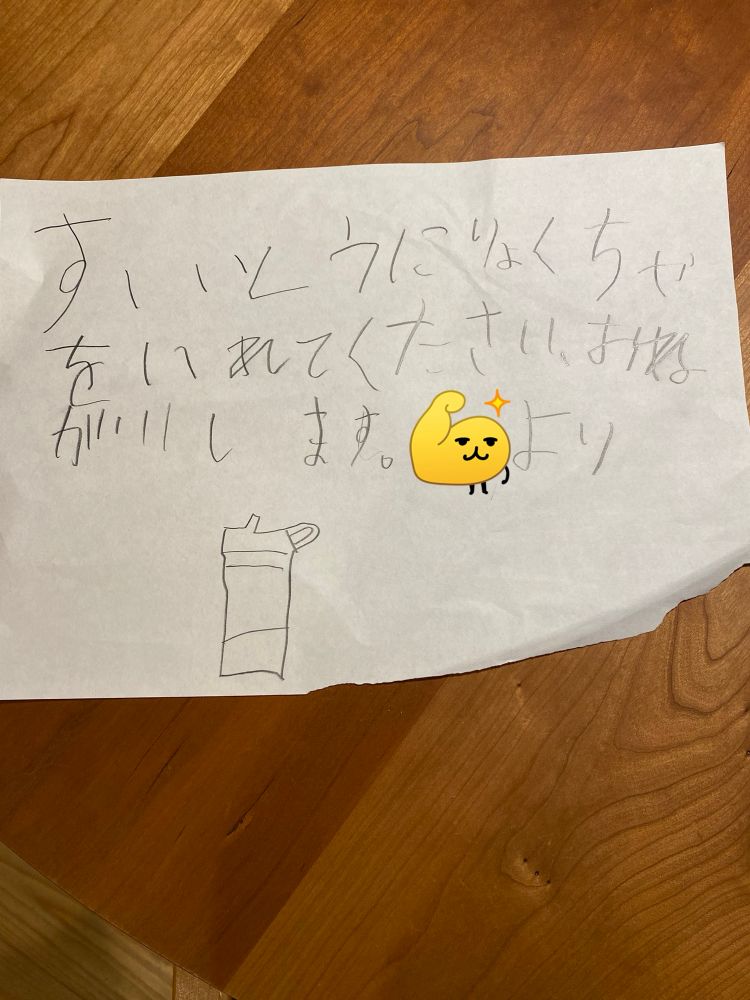 すいとうにりょくちゃ
をいれてください、おね
がいします。より